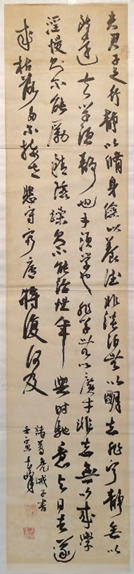 夫君子之行靜以脩身儉以養德非淡泊無以明志非寧靜無以
致遠夫學須靜也才須學也非學無以廣才非志無以成學
淫慢則不能勵精險躁則不能治性年與時馳意與日去遂
成枯落多不接世悲守窮廬將復何及
諸葛亮誡子書